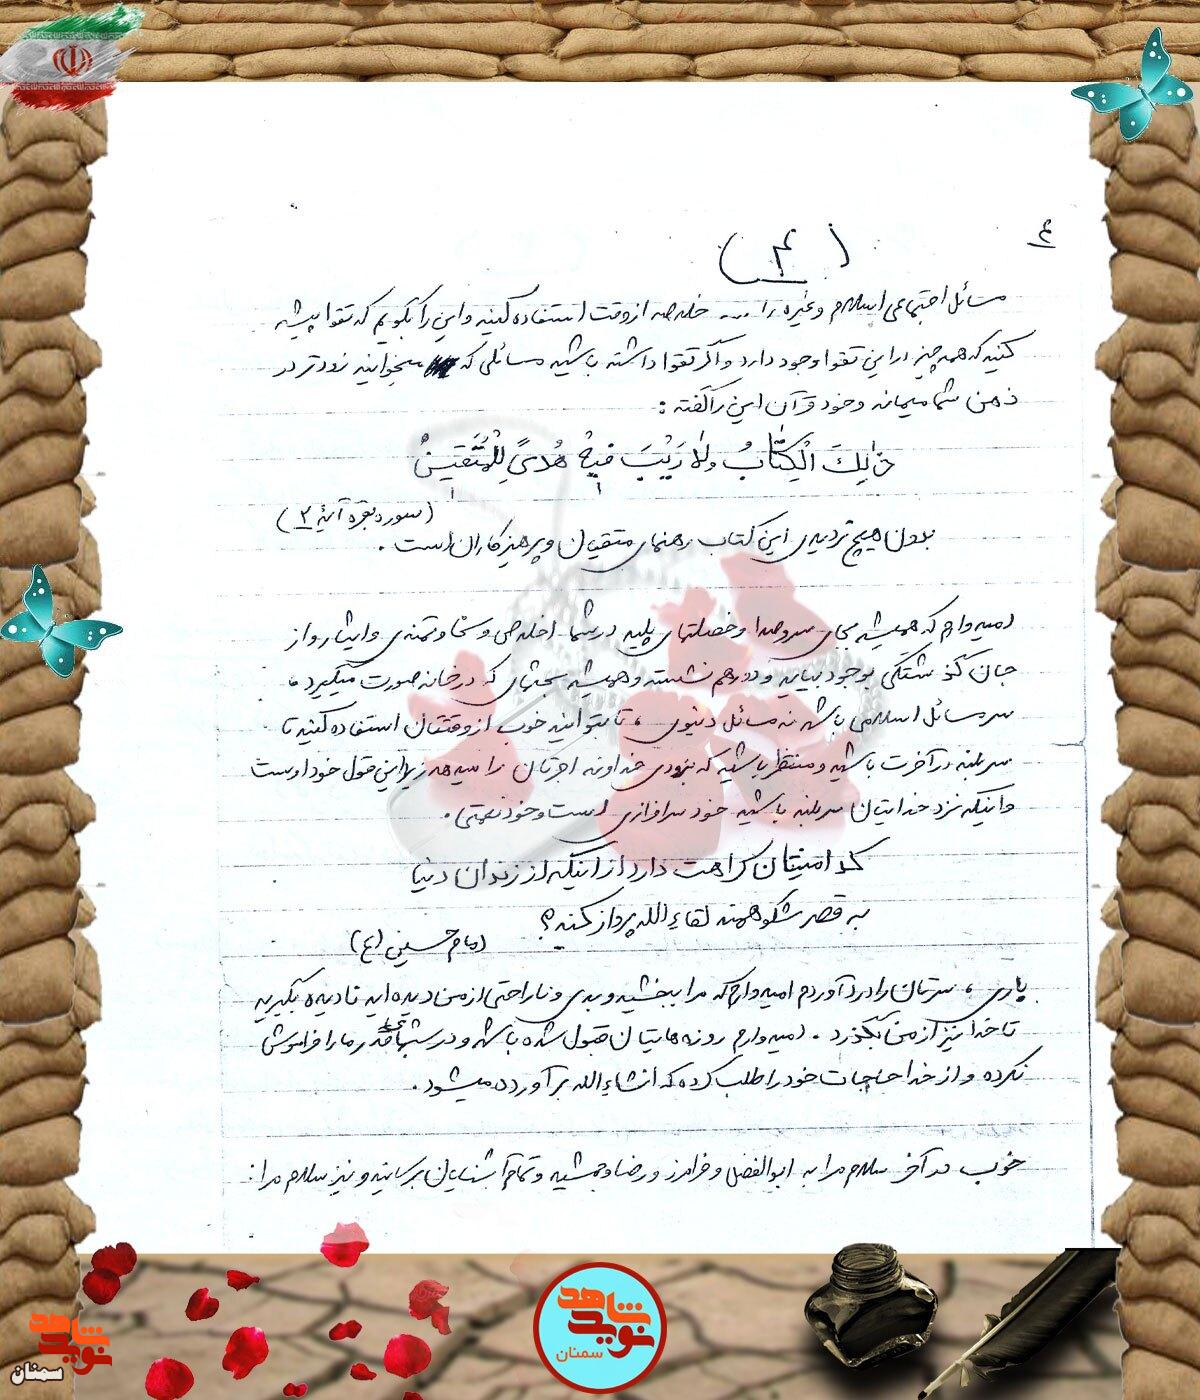 ۴
(۴)
مسائل اجتماعی اسلام و غیره را .... خلاصه از وقت استفاده کنید و این را بگویم که تقوا پیشه
کنید که همه چیز در این تقوا وجود دارد و اگر تقوا داشته باشید مسائلی که میخوانید زودتر در
ذهن شما میماند و خود قرآن این را گفته :
ذٰلِكَ الْكِتٰابُ وَلاٰ رَيْبَ فيهْ هُدىً لِلْمُتَّقينْ
(سوره بقره آیهٔ ۲)
بدون هیچ تردیدی این کتاب رهنمای متقیان و پرهیزکاران است .
امیدوارم که همیشه بجای سروصدا و خصلتهای پلید در شما اخلاص و سخاوتمندی و ایثار و از
جان گذشتگی بوجود بیاید و دورهم نشسته و همیشه بحثهای که در خانه صورت میگیرد ،
سر مسائل اسلامی باشد نه مسائل دنیوی ، تا بتوانید خوب از وقتتان استفاده کنید تا
سربلند در آخرت باشید و منتظر باشید که بزودی خداوند اجرتان را میدهد زیرا این قول خود اوست
و اینکه نزد خدایتان سربلند باشید خود سرافرازی است و خود نعمتی .
کدامینتان کراهت دارد از اینکه از زندان دنیا
به قصر شکوهمند لقاء الله پرواز کند ؟
امام حسین (ع)
باری ، سرتان را درد آوردم امیدوارم که مرا ببخشید و بدی و ناراحتی از من دیده اید نادیده بگیرید
تا خدا نیز از من بگذرد . امیدوارم روزه هایتان قبول شده باشد و در شبهای قدر ما را فراموش
نکرده و از خدا حاجات خود را طلب کرده که انشاءالله برآورده میشود .
خوب در آخر سلام مرا به ابوالفضل و فرامرز و رضا و جمشید و تمام آشنایان برسانید و نیز سلام مرا :
نوید شاهد
سمنان
نوید شاهد
سمنان